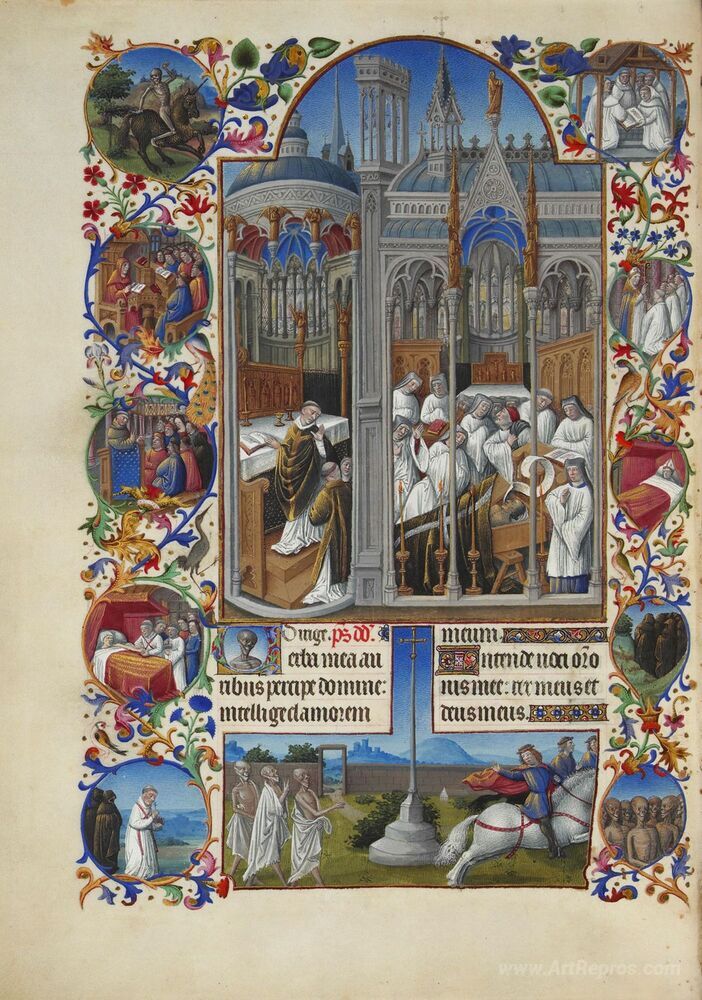 Dirige. ps dd.
Verba mea au
ribus percipe domine:
intellige clamorem
meum.
Intende uoci oro
nis mee: rex meus et
deus meus.
www.ArtRepros.com